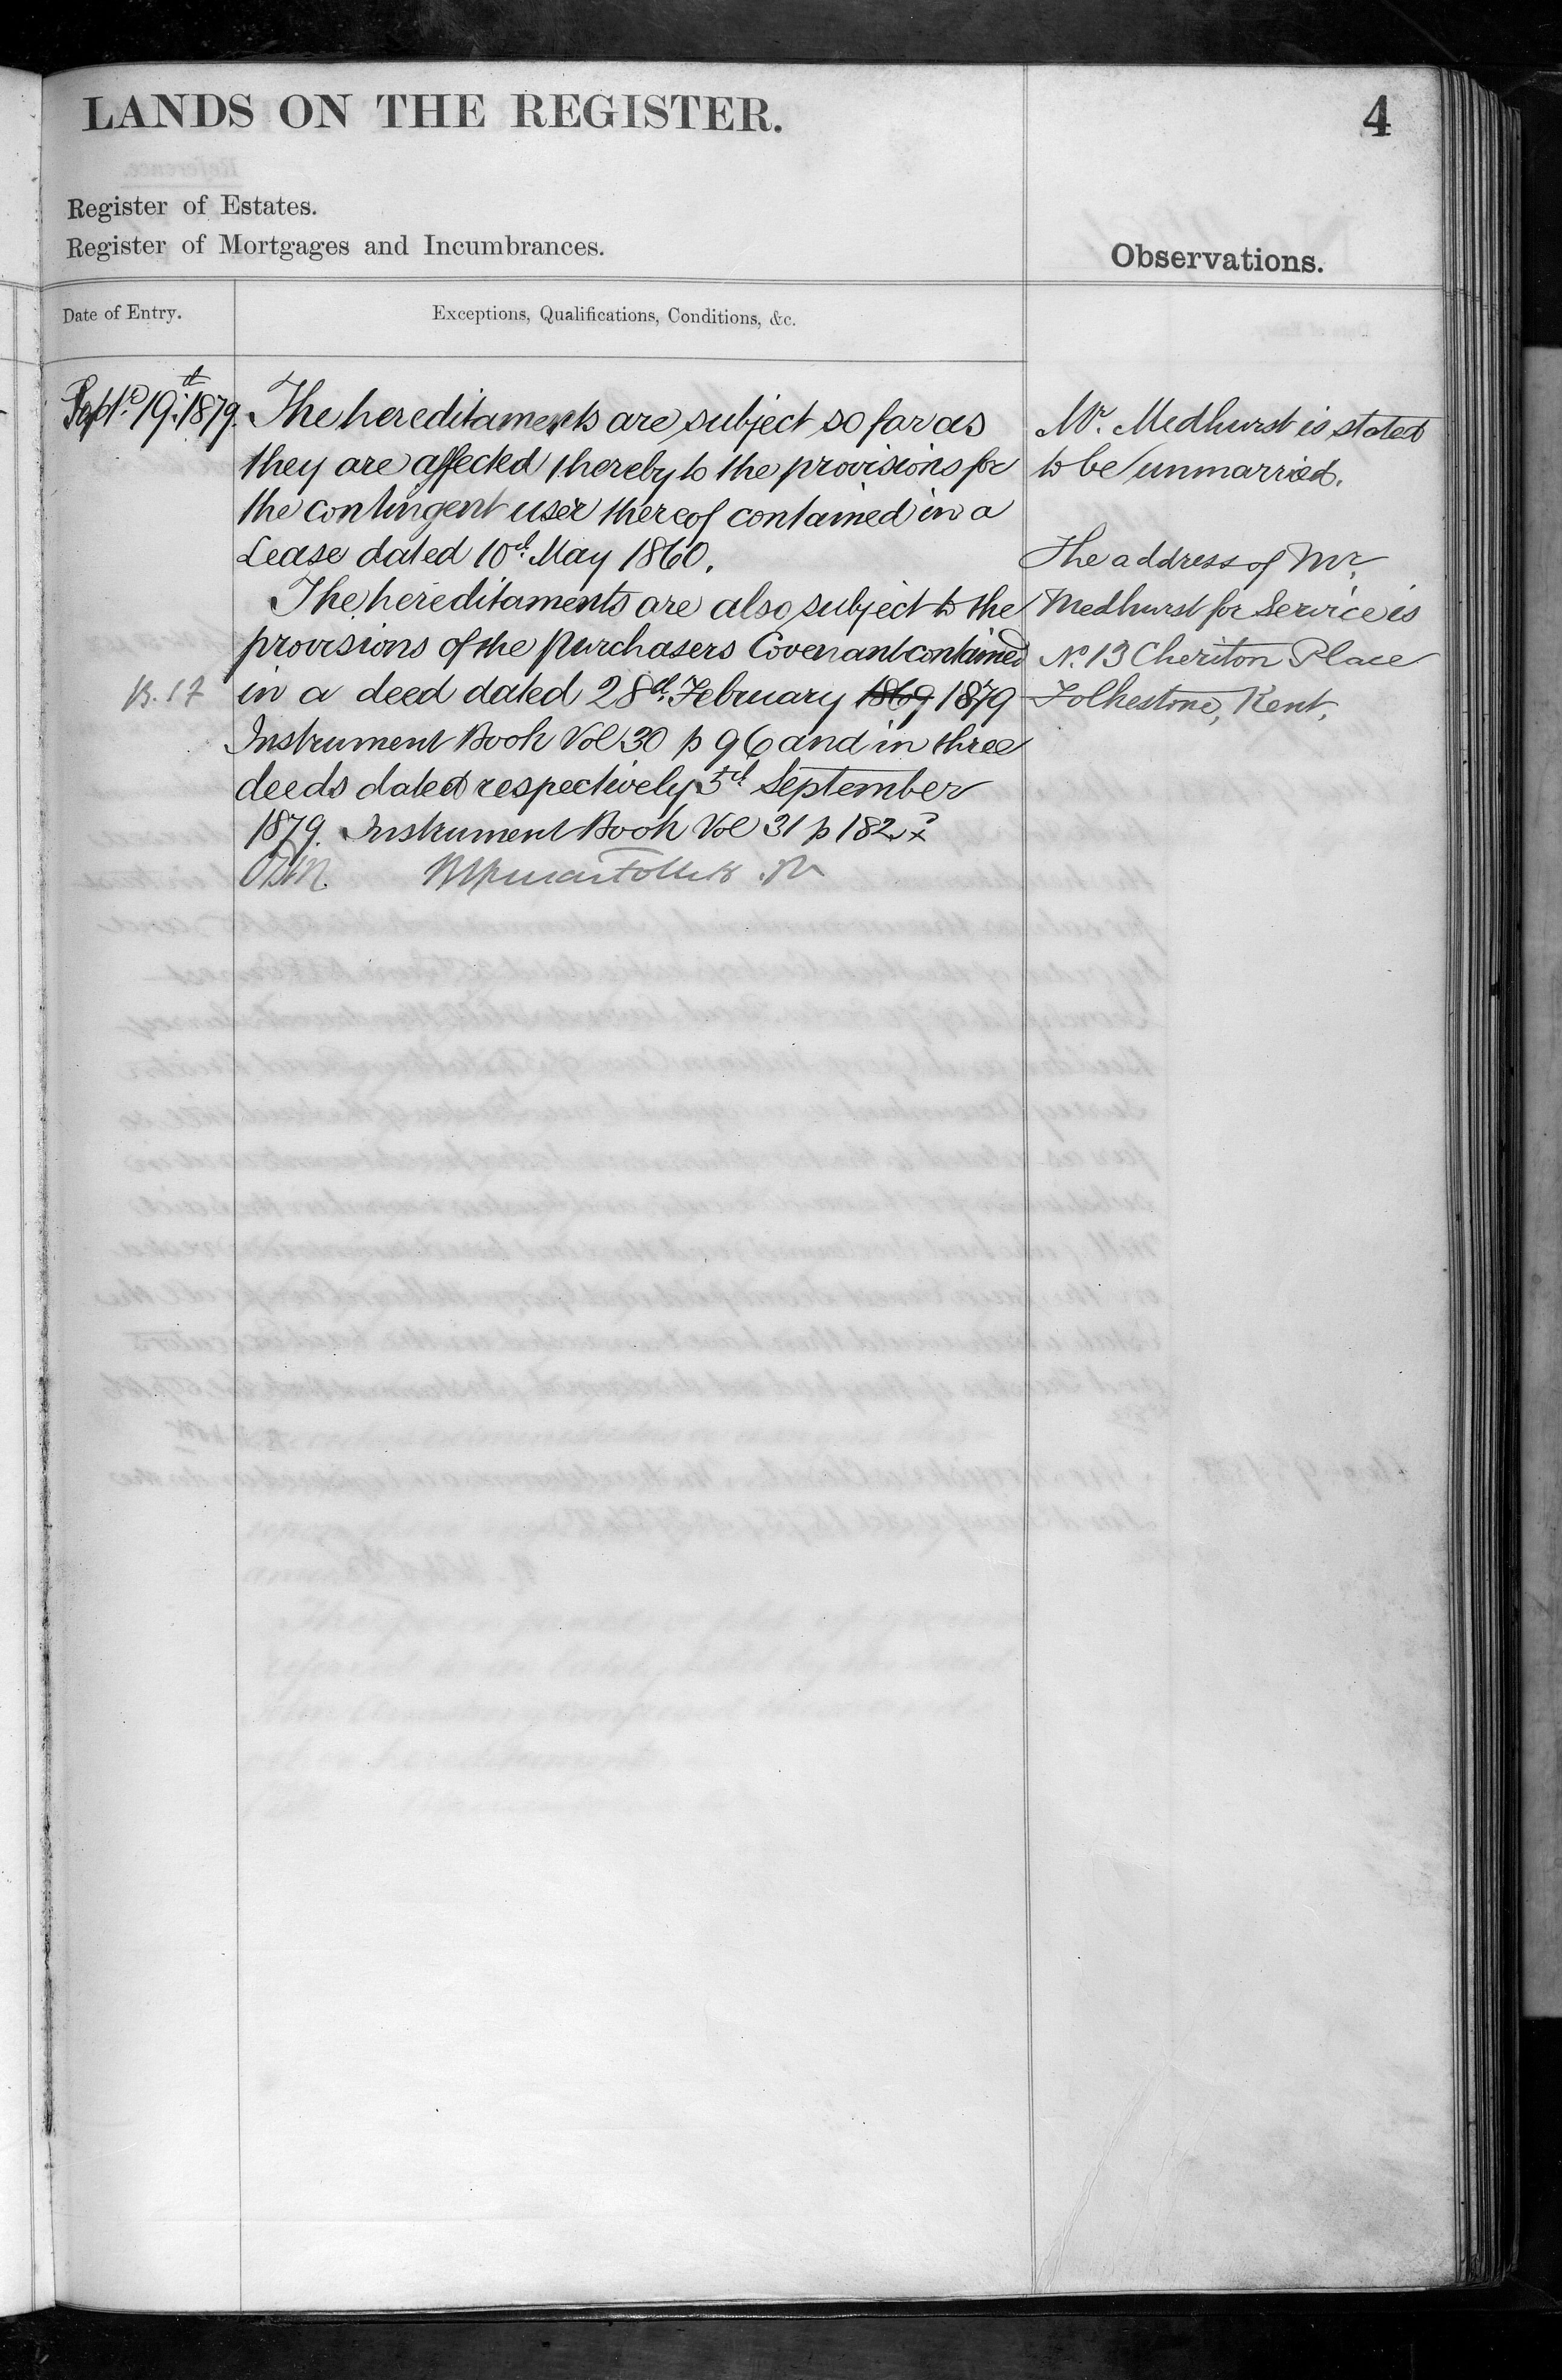 LANDS ON THE REGISTER.
4
Register of Estates.
Register of Mortgages and Incumbrances.
Observations.
Date of Entry.
Exceptions, Qualifications, Conditions, &c.
Septr. 19th. 1879.
The hereditaments are subject so far as
they are affected thereby to the provisions for
the contingent user thereof contained in a
Lease dated 10th. May 1860.
The hereditaments are also subject to the
provisions of the Purchasers Covenant contained
B. 17
in a deed dated 28th. February 1869 1879
Instrument Book Vol 30 p 96 and in three
deeds dated respectively 5th September
1879. Instrument Book Vol 31 p 182
Mr. Medhurst is stated
to be unmarried.
The address of Mr.
Medhurst for Service is
No. 13 Cheriton Place
Folkestone, Kent.